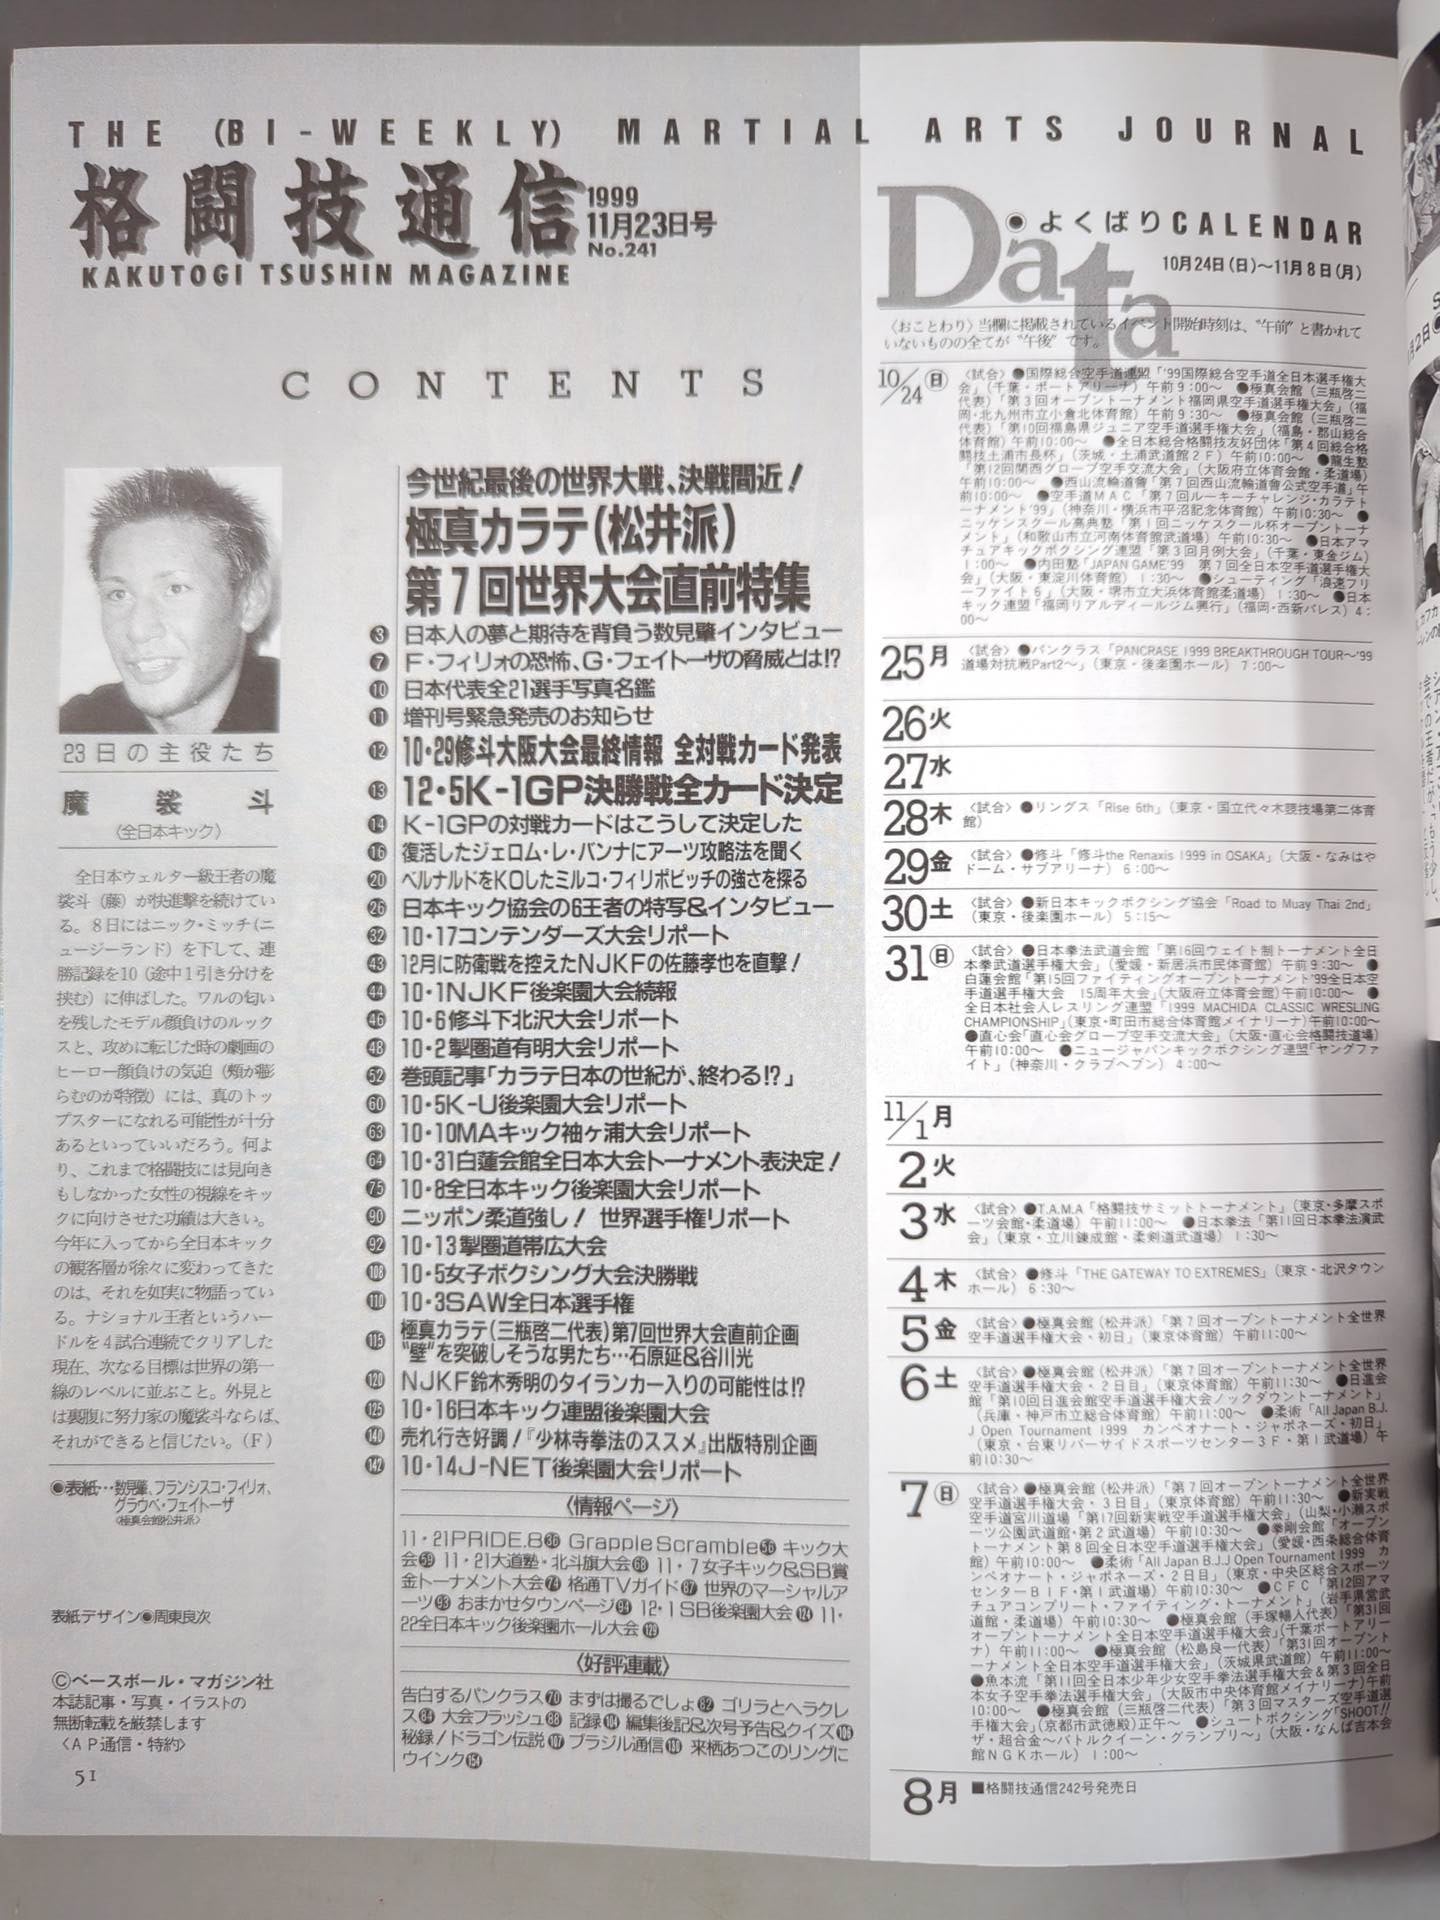 THE (BI-WEEKLY) MARTIAL ARTS JOURNAL
格闘技通信
1999
11月23日号
No.241
KAKUTOGI TSUSHIN MAGAZINE
CONTENTS
23日の主役たち
魔裟斗
(全日本キック)
全日本ウェルター級王者の魔
裟斗(藤)が快進撃を続けてい
る。8日にはニック・ミッチ(ニ
ュージーランド)を下して、連
勝記録を10(途中1引き分けを
挟む)に伸ばした。ワルの匂い
を残したモデル顔負けのルック
スと、攻めに転じた時の劇画の
ヒーロー顔負けの気迫(頬が膨
らむのが特徴)には、真のトッ
プスターになれる可能性が十分
あるといっていいだろう。何よ
り、これまで格闘技には見向き
もしなかった女性の視線をキッ
クに向けさせた功績は大きい。
今年に入ってから全日本キック
の観客層が徐々に変わってきた
のは、それを如実に物語ってい
る。ナショナル王者というハー
ドルを4試合連続でクリアした
現在、次なる目標は世界の第一
線のレベルに並ぶこと。外見と
は裏腹に努力家の魔裟斗ならば、
それができると信じたい。(F)
●表紙…数見肇、フランシスコ・フィリォ、
グラウベ・フェイトーザ
〈極真会館松井派〉
表紙デザイン●周東良次
©ベースボール・マガジン社
本誌記事・写真・イラストの
無断転載を厳禁します
〈AP通信・特約〉
51
今世紀最後の世界大戦、決戦間近!
極真カラテ(松井派)
第7回世界大会直前特集
3 日本人の夢と期待を背負う数見肇インタビュー
7 F・フィリォの恐怖、G・フェイトーザの脅威とは!?
10 日本代表全21選手写真名鑑
11 増刊号緊急発売のお知らせ
12 10・29修斗大阪大会最終情報 全対戦カード発表
13 12・5K-1GP決勝戦全カード決定
14 K-1GPの対戦カードはこうして決定した
16 復活したジェロム・レ・バンナにアーツ攻略法を聞く
20 ベルナルドをKOしたミルコ・フィリポビッチの強さを探る
26 日本キック協会の6王者の特写&インタビュー
32 10・17コンテンダーズ大会リポート
43 12月に防衛戦を控えたNJKFの佐藤孝也を直撃!
44 10・1NJKF後楽園大会続報
46 10・6修斗下北沢大会リポート
48 10・2掣圏道有明大会リポート
52 巻頭記事「カラテ日本の世紀が、終わる!?」
60 10・5K-U後楽園大会リポート
63 10・10MAキック袖ヶ浦大会リポート
64 10・31白蓮会館全日本大会トーナメント表決定!
75 10・8全日本キック後楽園大会リポート
90 ニッポン柔道強し! 世界選手権リポート
92 10・13掣圏道帯広大会
108 10・5女子ボクシング大会決勝戦
110 10・3SAW全日本選手権
115 極真カラテ(三瓶啓二代表)第7回世界大会直前企画
“壁”を突破しそうな男たち…石原延&谷川光
120 NJKF鈴木秀明のタイランカー入りの可能性は!?
125 10・16日本キック連盟後楽園大会
140 売れ行き好調!『少林寺拳法のススメ』出版特別企画
142 10・14J-NET後楽園大会リポート
〈情報ページ〉
11・21PRIDE.8 36 Grapple Scramble 56 キック大
会 59 11・21大道塾・北斗旗大会 68 11・7女子キック&SB賞
金トーナメント大会 74 格通TVガイド 87 世界のマーシャルア
ーツ 93 おまかせタウンページ 94 12・1SB後楽園大会 124 11・
22全日本キック後楽園ホール大会 129
〈好評連載〉
告白するパンクラス 70 まずは撮るでしょ 82 ゴリラとヘラクレ
ス 84 大会フラッシュ 88 記録 104 編集後記&次号予告&クイズ 106
秘録!ドラゴン伝説 107 ブラジル通信 146 来栖あつこのリングに
ウインク 154
Data
●よくばりCALENDAR
10月24日(日)〜11月8日(月)
〈おことわり〉当欄に掲載されているイベント開始時刻は、“午前”と書かれて
いないものの全てが“午後”です。
10/24 日 〈試合〉●国際総合空手道連盟「'99国際総合空手道全日本選手権大
会」(千葉・ポートアリーナ)午前9:00〜 ●極真会館(三瓶啓二
代表)「第3回オープントーナメント福岡県空手道選手権大会」(福
岡・北九州市立小倉北体育館)午前9:30〜 ●極真会館(三瓶啓二
代表)「第10回福島県ジュニア空手道選手権大会」(福島・郡山総合
体育館)午前10:00〜 ●全日本総合格闘技友好団体「第4回総合格
闘技土浦市長杯」(茨城・土浦武道館2F)午前10:00〜 ●龍生塾
「第12回関西グローブ空手交流大会」(大阪府立体育会館・柔道場)
午前10:00〜 ●西山流輪道會「第7回西山流輪道會公式空手道」午
前10:00〜 ●空手道MAC「第7回ルーキーチャレンジ・カラテト
ーナメント'99」(神奈川・横浜市平沼記念体育館)午前10:30〜 ●
ニッケンスクール高典塾「第1回ニッケスクール杯オープントーナ
メント」(和歌山市立河南体育館武道場)午前10:30〜 ●日本アマ
チュアキックボクシング連盟「第3回月例大会」(千葉・東金ジム)
1:00〜 ●内田塾「JAPAN GAME'99 第7回全日本空手道選手権大
会」(大阪・東淀川体育館)1:30〜 ●シューティング「浪速フリ
ーファイト6」(大阪・堺市立大浜体育館柔道場)1:30〜 ●日本
キック連盟「福岡リアルディールジム興行」(福岡・西新パレス)4:
00〜
25月 〈試合〉●パンクラス「PANCRASE 1999 BREAKTHROUGH TOUR〜'99
道場対抗戦Part2〜」(東京・後楽園ホール)7:00〜
26火
27水
28木 〈試合〉●リングス「Rise 6th」(東京・国立代々木競技場第二体育
館)
29金 〈試合〉●修斗「修斗the Renaxis 1999 in OSAKA」(大阪・なみはや
ドーム・サブアリーナ)6:00〜
30土 〈試合〉●新日本キックボクシング協会「Road to Muay Thai 2nd」
(東京・後楽園ホール)5:15〜
31日 〈試合〉●日本拳法武道会館「第16回ウェイト制トーナメント全日
本拳武道選手権大会」(愛媛・新居浜市民体育館)午前9:30〜 ●
白蓮会館「第15回ファイティングオープントーナメント'99全日本空
手道選手権大会 15周年大会」(大阪府立体育会館)午前10:00〜 ●
全日本社会人レスリング連盟「1999 MACHIDA CLASSIC WRESLING
CHAMPIONSHIP」(東京・町田市総合体育館メイナリーナ)午前10:00〜
●直心会「直心会グローブ空手交流大会」(大阪・直心会格闘技道場)
午前10:00〜 ●ニュージャパンキックボクシング連盟「ヤングファ
イト」(神奈川・クラブヘブン)4:00〜
11/1月
2火
3水 〈試合〉●T.A.M.A「格闘技サミットトーナメント」(東京・多摩スポ
ーツ会館・柔道場)午前11:00〜 ●日本拳法「第11回日本拳法演武
会」(東京・立川錬成館・柔剣道武道場)1:30〜
4木 〈試合〉●修斗「THE GATEWAY TO EXTREMES」(東京・北沢タウン
ホール)6:30〜
5金 〈試合〉●極真会館(松井派)「第7回オープントーナメント全世界
空手道選手権大会・初日」(東京体育館)午前11:00〜
6土 〈試合〉●極真会館(松井派)「第7回オープントーナメント全世界
空手道選手権大会・2日目」(東京体育館)午前11:30〜 ●日進会
館「第10回日進会館空手道選手権大会/ノックダウントーナメント」
(兵庫・神戸市立総合体育館)午前11:00〜 ●柔術「All Japan B.J.
J Open Tournament 1999 カンペオナート・ジャポネーズ・初日」
(東京・台東リバーサイドスポーツセンター3F・第1武道場)午
前10:30〜
7日 〈試合〉●極真会館(松井派)「第7回オープントーナメント全世界
空手道選手権大会・3日目」(東京体育館)午前11:30〜 ●新実戦
空手道宮川道場「第17回新実戦空手道選手権大会」(山梨・小瀬スポ
ーツ公園武道館・第2武道場)午前10:30〜 ●拳剛会館「オープン
トーナメント第8回全日本空手道選手権大会」(愛媛・西条総合体育
館)午前10:00〜 ●柔術「All Japan B.J.J Open Tournament 1999 カ
ンペオナート・ジャポネーズ・2日目」(東京・中央区総合スポーツ
センターB1F・第1武道場)午前10:30〜 ●CFC「第12回アマ
チュアコンプリート・ファイティング・トーナメント」(岩手県営武
道館・柔道場)午前10:00〜 ●極真会館(手塚暢人代表)「第31回
オープントーナメント全日本空手道選手権大会」(千葉ポートアリー
ナ)午前11:00〜 ●極真会館(松島良一代表)「第31回オープント
ーナメント全日本空手道選手権大会」(茨城県武道館)午前11:00〜
●魚本流「第11回全日本少年少女空手拳法選手権大会&第3回全日
本女子空手拳法選手権大会」(大阪市中央体育館メイナリーナ)午前
10:00〜 ●極真会館(三瓶啓二代表)「第3回マスターズ空手道選
手権大会」(京都市武徳殿)正午〜 ●シュートボクシング「SHOOT!!
ザ・超合金〜バトルクイーン・グランプリ〜」(大阪・なんば吉本会
館NGKホール)1:00〜
8月 ■格闘技通信242号発売日